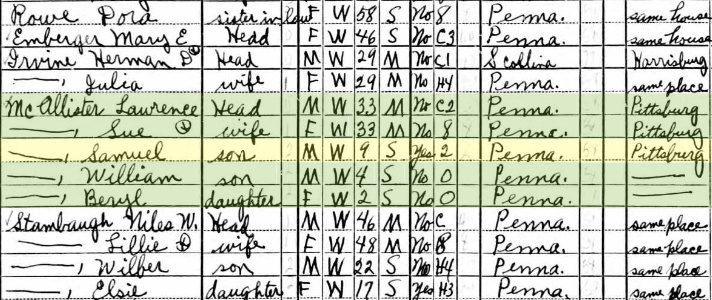 Rowe Dora sister in law F W 58 S No 8 Penna. same house
Emberger Mary E Head F W 46 S No C3 Penna. same house
Irvine Herman D Head M W 29 M No C1 S Collina Harrisburg
——, Julia wife F W 29 M No H4 Penna. same place
McAllister Lawrence Head M W 33 M No C2 Penna. Pittsburg
——, Sue wife F W 33 M No 8 Penna. Pittsburg
——, Samuel son M W 9 S Yes 2 Penna. Pittsburg
——, William son M W 4 S No 0 Penna. ——
——, Beryl daughter F W 2 S No 0 Penna. ——
Stambaugh Niles W. Head M W 46 M No C Penna. same place
—— Lillie wife F W 48 M No 8 Penna. same place
——, Wilber son M W 22 S No H4 Penna. same place
——, Elsie daughter F W 17 S Yes H3 Penna. same place